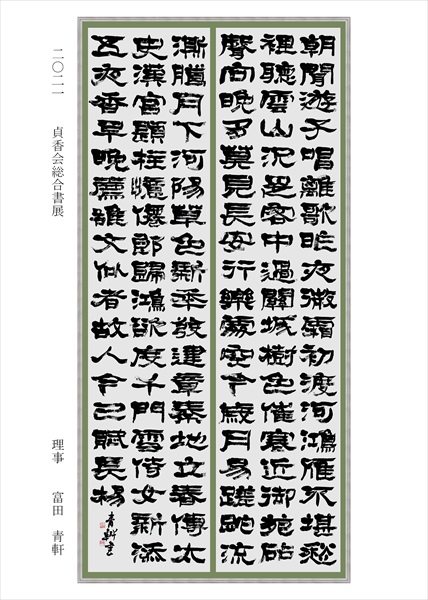 朝聞遊子唱離歌昨夜微霜初渡河鴻雁不堪愁
裡聽雲山況是客中過關城樹色催寒近御苑砧
聲向晚多莫見長安行樂處空令歲月易蹉跎流
澌臘月下河陽草色新年發建章秦地立春傳太
史漢宮題柱憶僊郎歸鴻欲度千門雪侍女新添
五夜香早晚薦雄文似者故人今已賦長楊
青軒書
二〇二一　貞香会総合書展
理事　富田　青軒